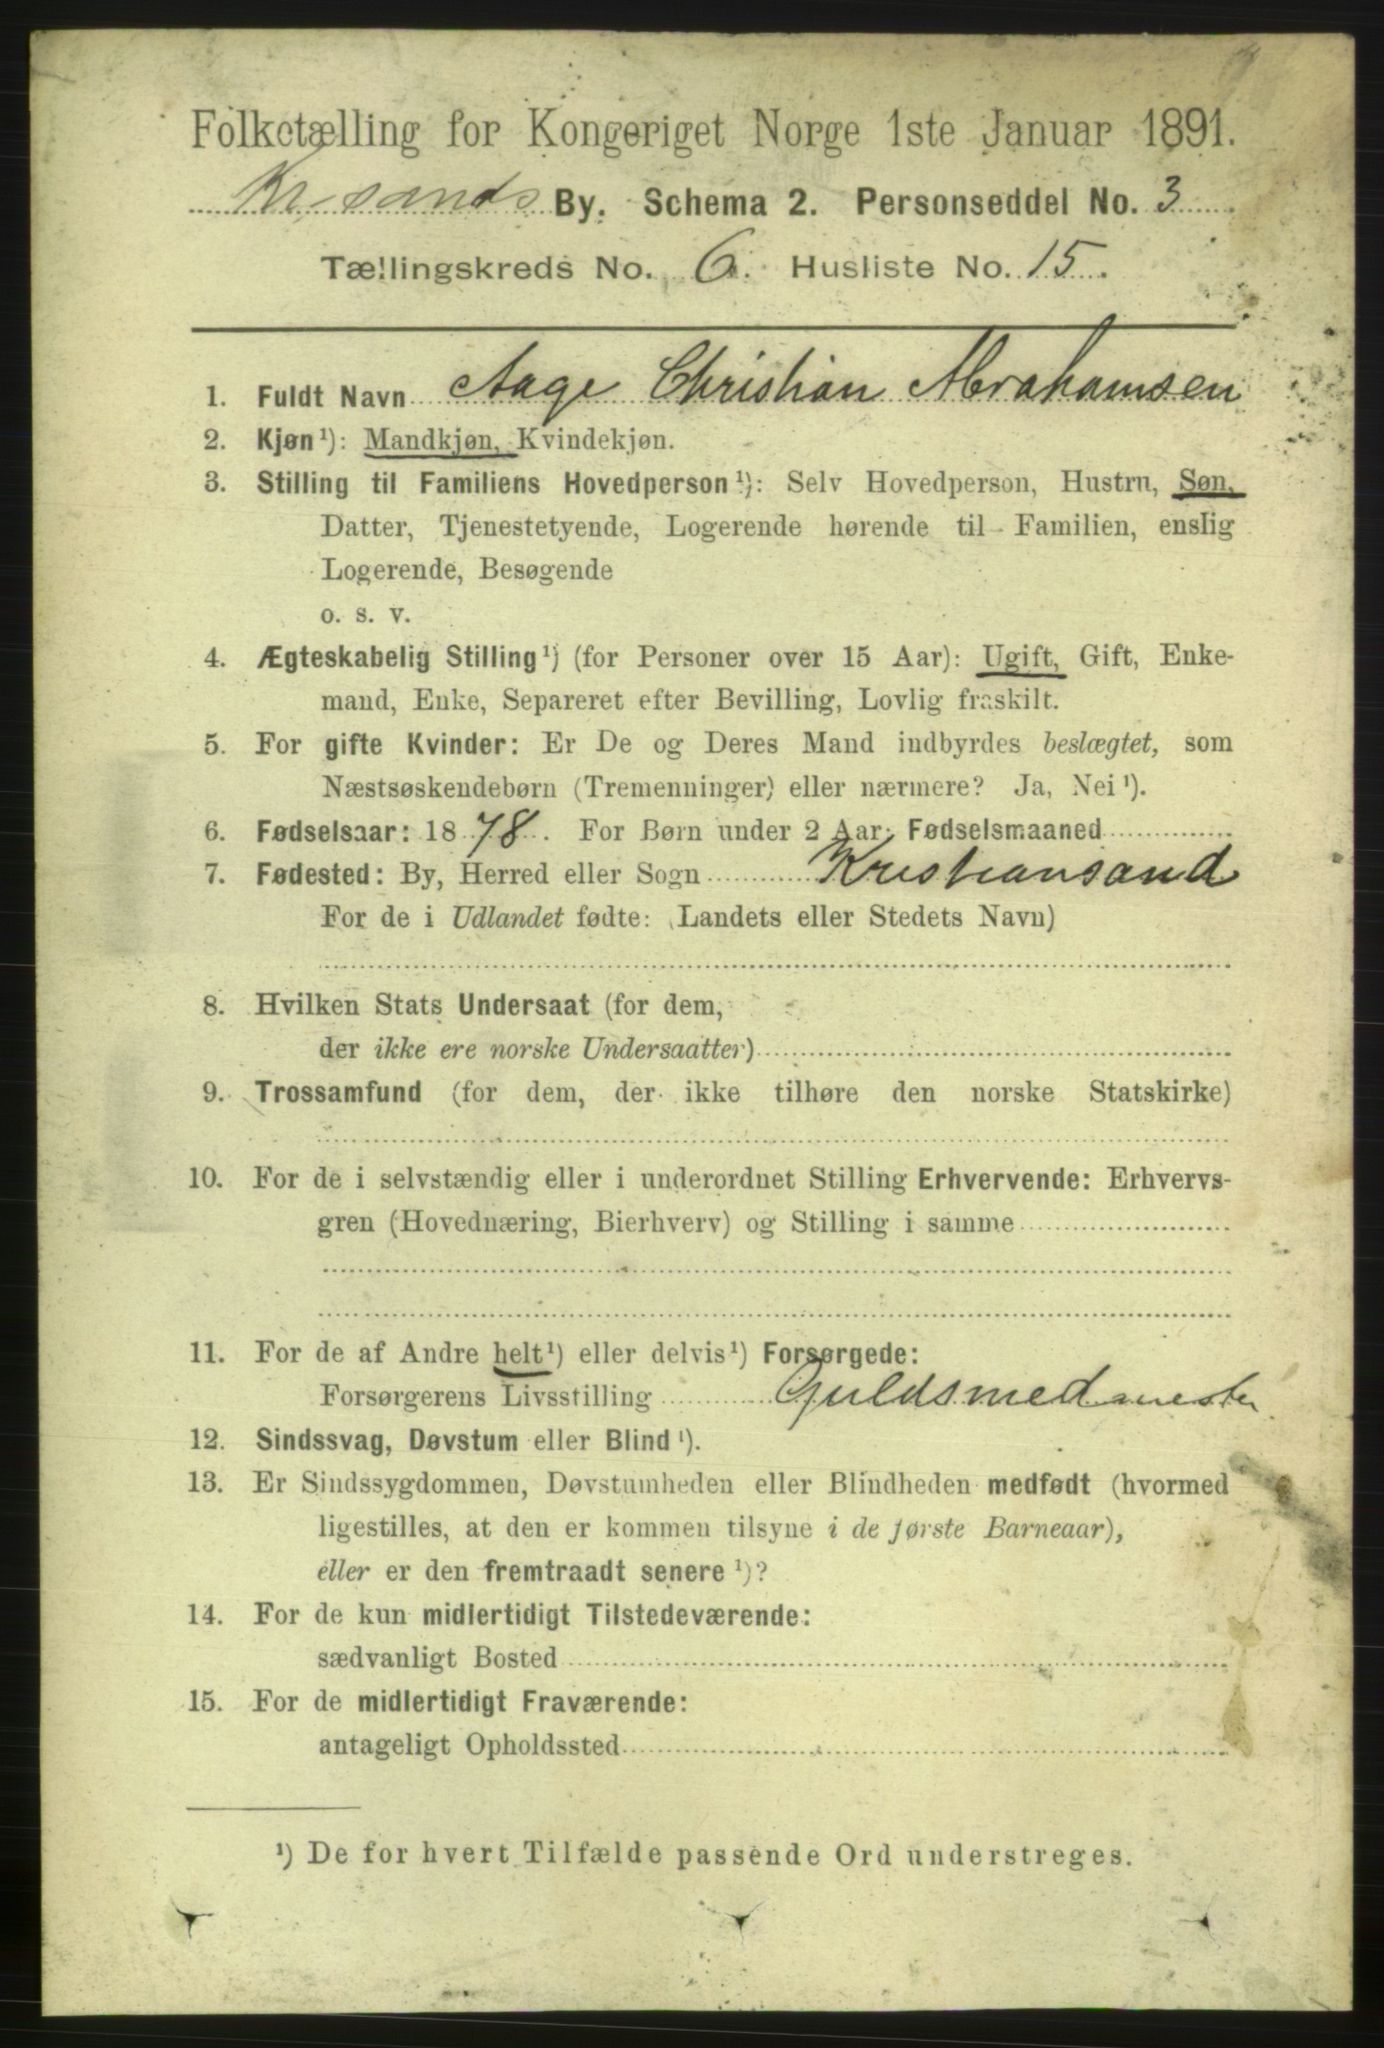 Folketælling for Kongeriget Norge 1ste Januar 1891.
Kr.sands By. Schema 2. Personseddel No. 3
Tællingskreds No. 6. Husliste No. 15.
1. Fuldt Navn Aage Christian Abrahamsen
2. Kjøn¹): Mandkjøn, Kvindekjøn.
3. Stilling til Familiens Hovedperson¹): Selv Hovedperson, Hustru, Søn,
Datter, Tjenestetyende, Logerende hørende til Familien, enslig
Logerende, Besøgende
o. s. v.
4. Ægteskabelig Stilling¹) (for Personer over 15 Aar): Ugift, Gift, Enke-
mand, Enke, Separeret efter Bevilling, Lovlig fraskilt.
5. For gifte Kvinder: Er De og Deres Mand indbyrdes beslægtet, som
Næstsøskendebørn (Tremenninger) eller nærmere? Ja, Nei¹).
6. Fødselsaar: 1878. For Børn under 2 Aar: Fødselsmaaned
7. Fødested: By, Herred eller Sogn Kristiansand
For de i Udlandet fødte: (Landets eller Stedets Navn)
8. Hvilken Stats Undersaat (for dem,
der ikke ere norske Undersaatter)
9. Trossamfund (for dem, der ikke tilhøre den norske Statskirke)
10. For de i selvstændig eller i underordnet Stilling Erhvervende: Erhvervs-
gren (Hovednæring, Bierhverv) og Stilling i samme
11. For de af Andre helt¹) eller delvis¹) Forsørgede:
Forsørgerens Livsstilling Guldsmedmester
12. Sindssvag, Døvstum eller Blind¹).
13. Er Sindssygdommen, Døvstumheden eller Blindheden medfødt (hvormed
ligestilles, at den er kommen tilsyne i de første Barneaar),
eller er den fremtraadt senere¹)?
14. For de kun midlertidigt Tilstedeværende:
sædvanligt Bosted
15. For de midlertidigt Fraværende:
antageligt Opholdssted
¹) De for hvert Tilfælde passende Ord understreges.